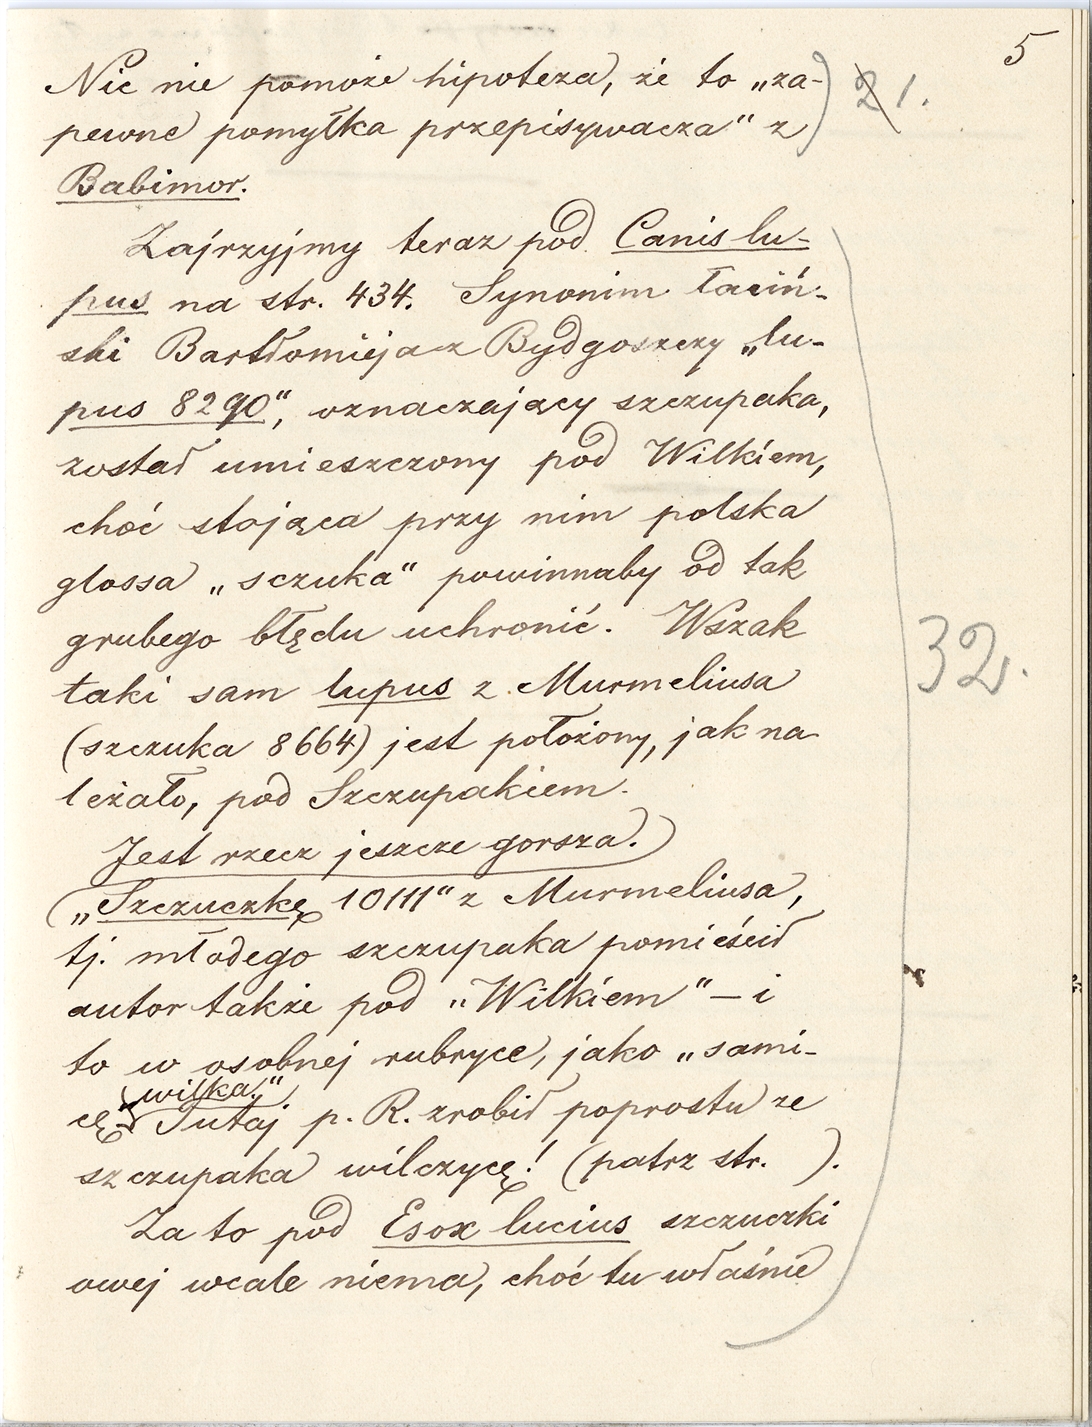 5
Nic nie pomoże hipoteza, że to „za-
pewne pomyłka przepisywacza" z
Babimor.
21.
Zajrzyjmy teraz pod Canis lu-
pus na str. 434. Synonim łaciń-
ski Bartłomieja z Bydgoszczy „lu-
pus 8290", oznaczający szczupaka,
został umieszczony pod Wilkiem,
choć stojąca przy nim polska
glossa „sczuka" powinnaby od tak
grubego błędu uchronić. Wszak
taki sam lupus z Murmeliusa
(szczuka 8664) jest położony, jak na
leżało, pod Szczupakiem.
32.
Jest rzecz jeszcze gorsza.)
(„Szczuczkę 10111" z Murmeliusa,
tj. młodego szczupaka pomieścił
autor także pod „Wilkiem" – i
to w osobnej rubryce, jako „sami-
wilka."
cę Tutaj p. R. zrobił poprostu ze
szczupaka wilczycę! (patrz str. ).
Za to pod Esox lucius szczuczki
owej wcale niema, choć tu właśnie